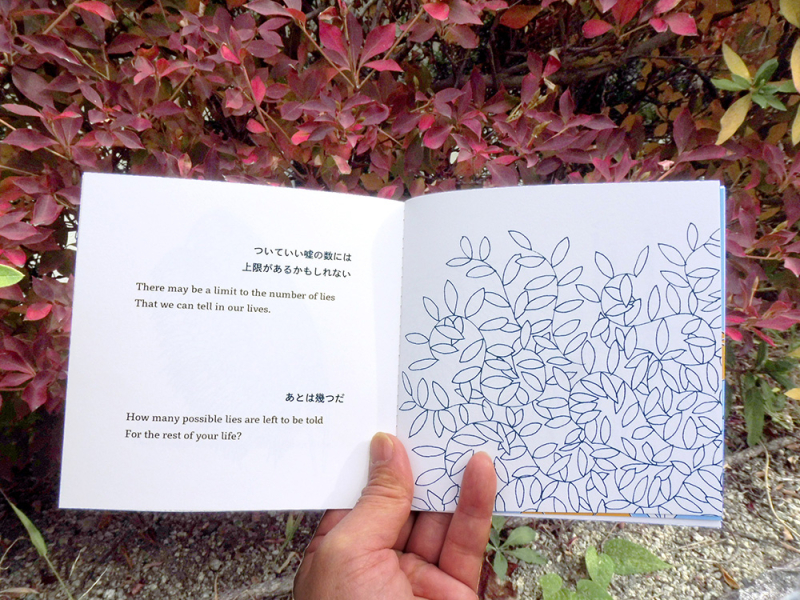 ついていい嘘の数には
上限があるかもしれない
There may be a limit to the number of lies
That we can tell in our lives.
あとは幾つだ
How many possible lies are left to be told
For the rest of your life?